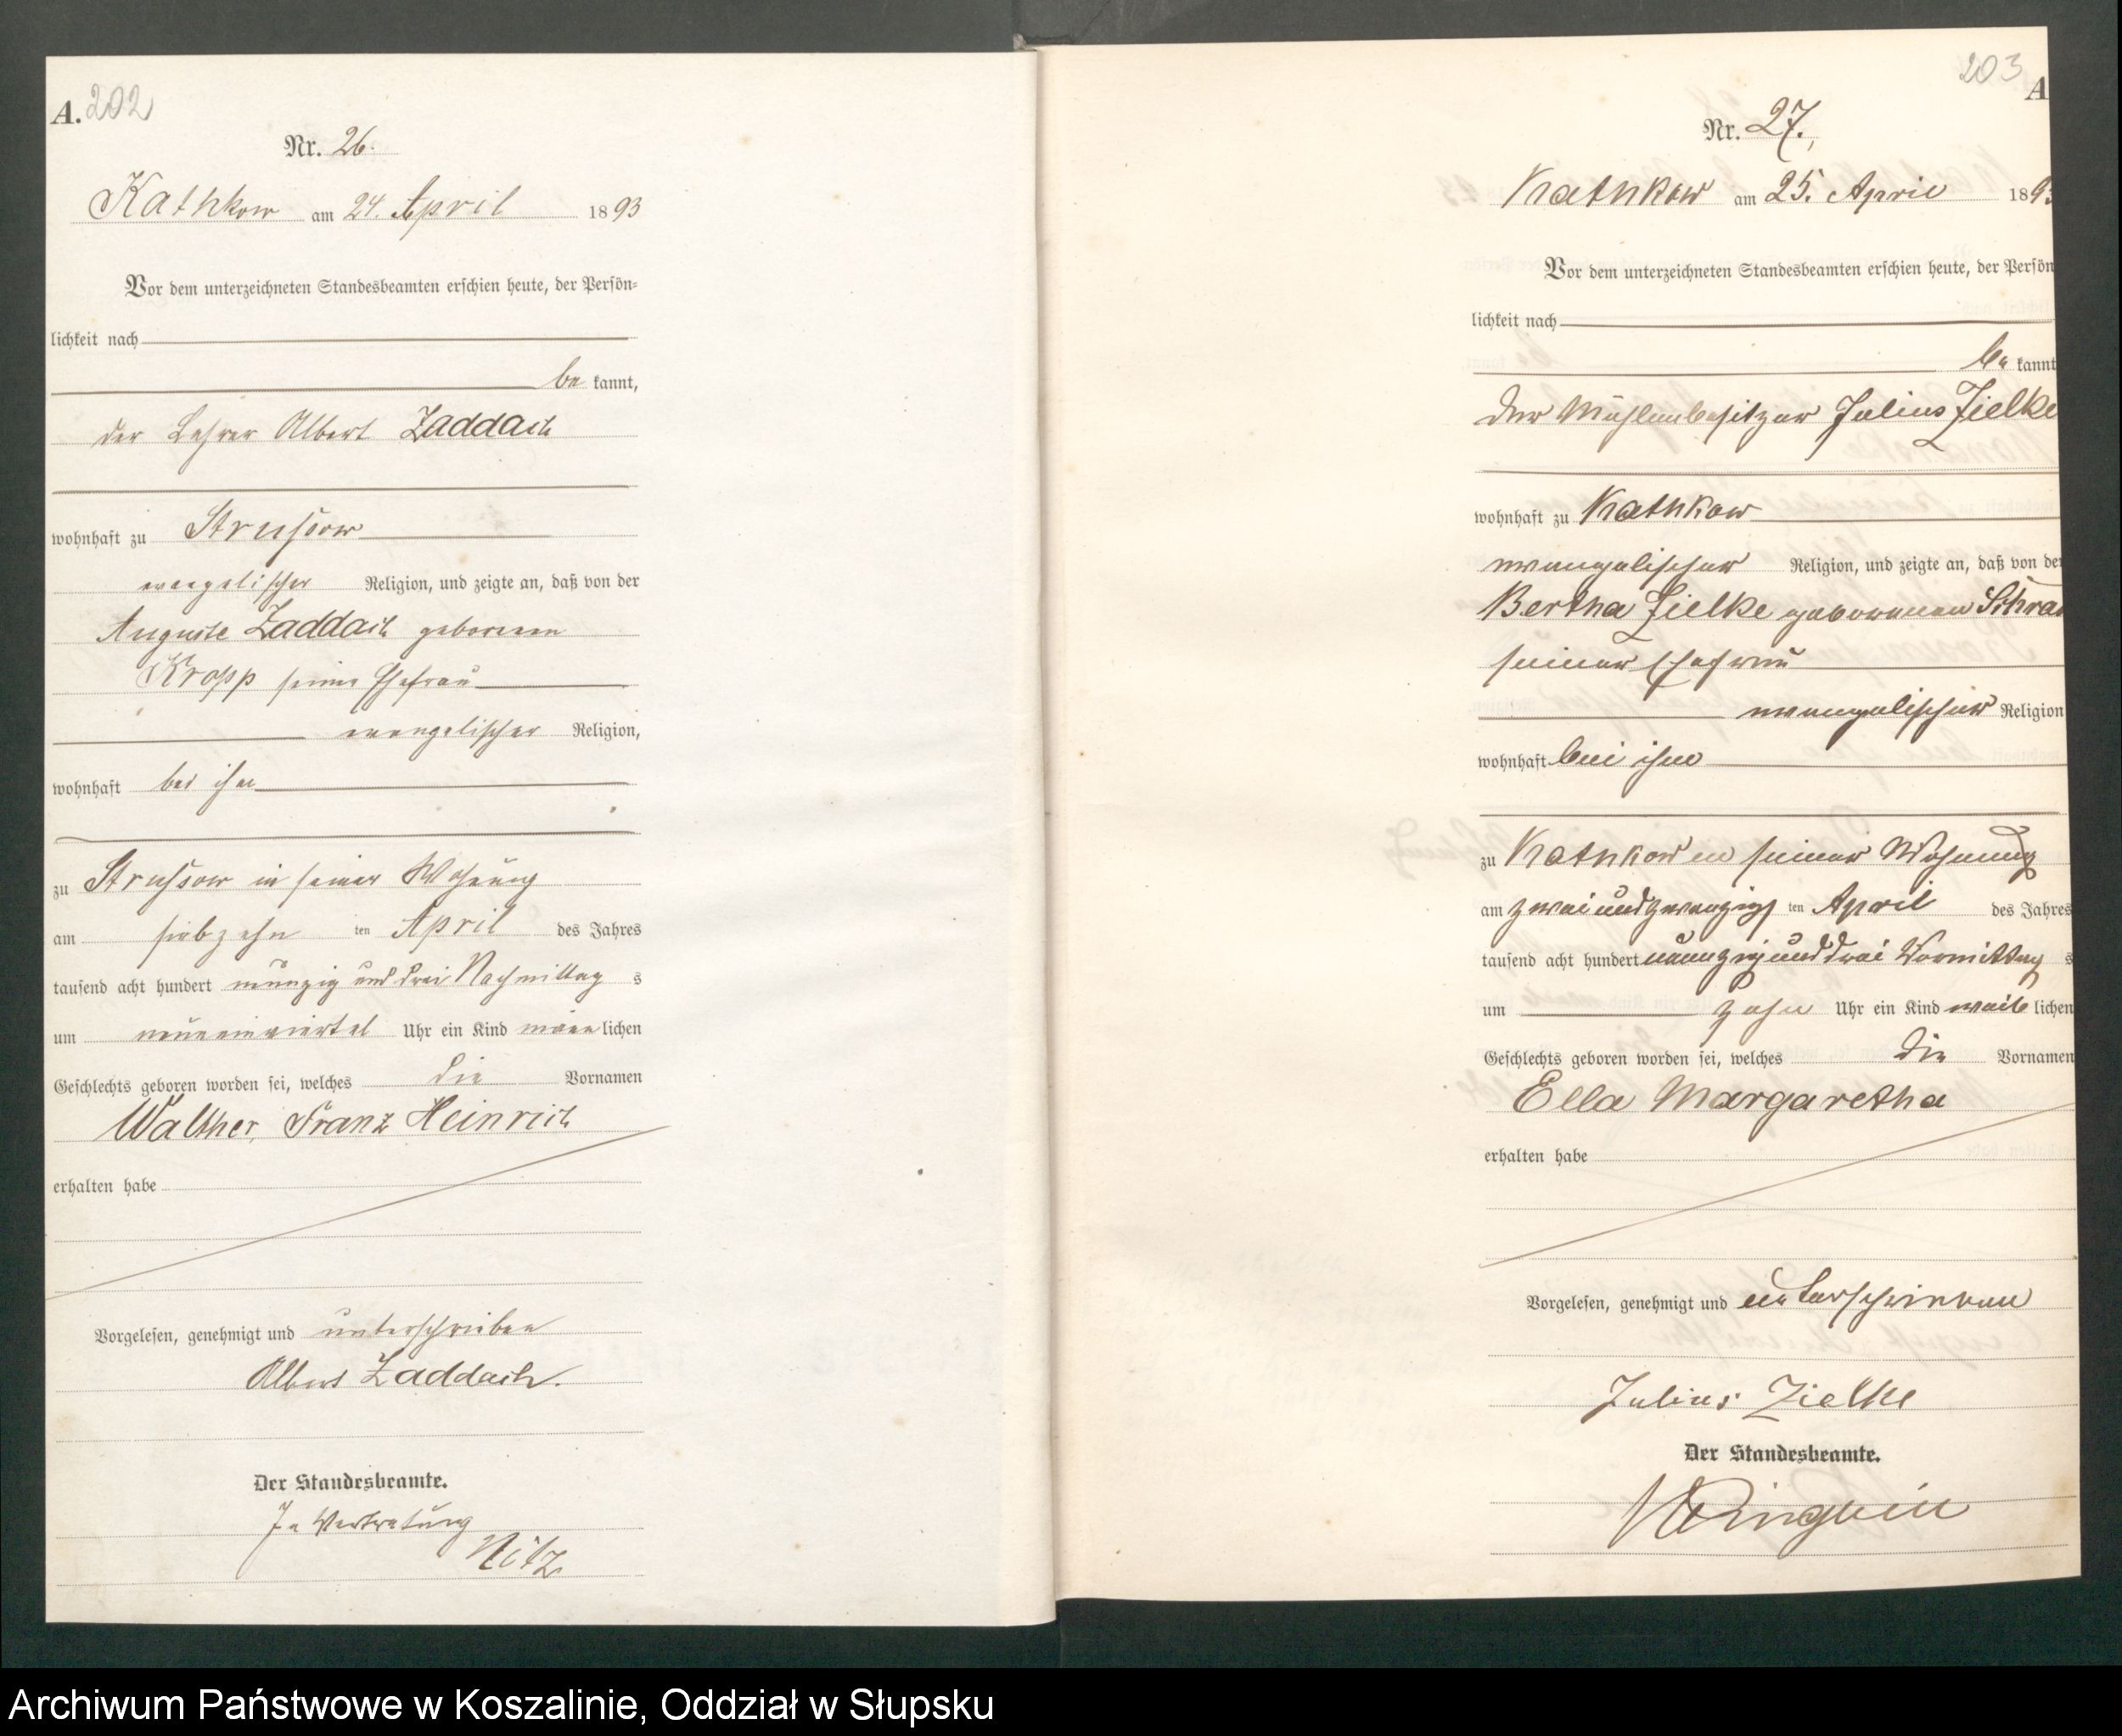 A. 202
Nr. 26.
Kathkow am 24. April 1893
Vor dem unterzeichneten Standesbeamten erschien heute, der Persön-
lichkeit nach
be kannt,
der Lehrer Albert Zaddach
wohnhaft zu Strussow
evangelischer Religion, und zeigte an, daß von der
Auguste Zaddach geborenen
Kropp seiner Ehefrau
evangelischer Religion,
wohnhaft bei ihm
zu Strussow in seiner Wohnung
am siebzehn ten April des Jahres
tausend acht hundert neunzig und drei Nachmittag s
um Uhr ein Kind männ lichen
Geschlechts geboren worden sei, welches die Vornamen
Walther, Franz Heinrich
erhalten habe
Vorgelesen, genehmigt und unterschrieben
Albert Zaddach.
Der Standesbeamte.
In Vertretung
Nitz
203
A
Nr. 27.
Kathkow am 25. April 1893
Vor dem unterzeichneten Standesbeamten erschien heute, der Persön
lichkeit nach
be kannt
der Mühlenbesitzer Julius Zielke
wohnhaft zu Kathkow
evangelischer Religion, und zeigte an, daß von der
Bertha Zielke geborenen
seiner Ehefrau
evangelischer Religion
wohnhaft bei ihm
zu Kathkow in seiner Wohnung
am zweiundzwanzig ten April des Jahres
tausend acht hundert neunzig und drei Vormittag s
um zehn Uhr ein Kind weib lichen
Geschlechts geboren worden sei, welches die Vornamen
Ella Margaretha
erhalten habe
Vorgelesen, genehmigt und unterschrieben
Julius Zielke
Der Standesbeamte.
Archiwum Państwowe w Koszalinie, Oddział w Słupsku